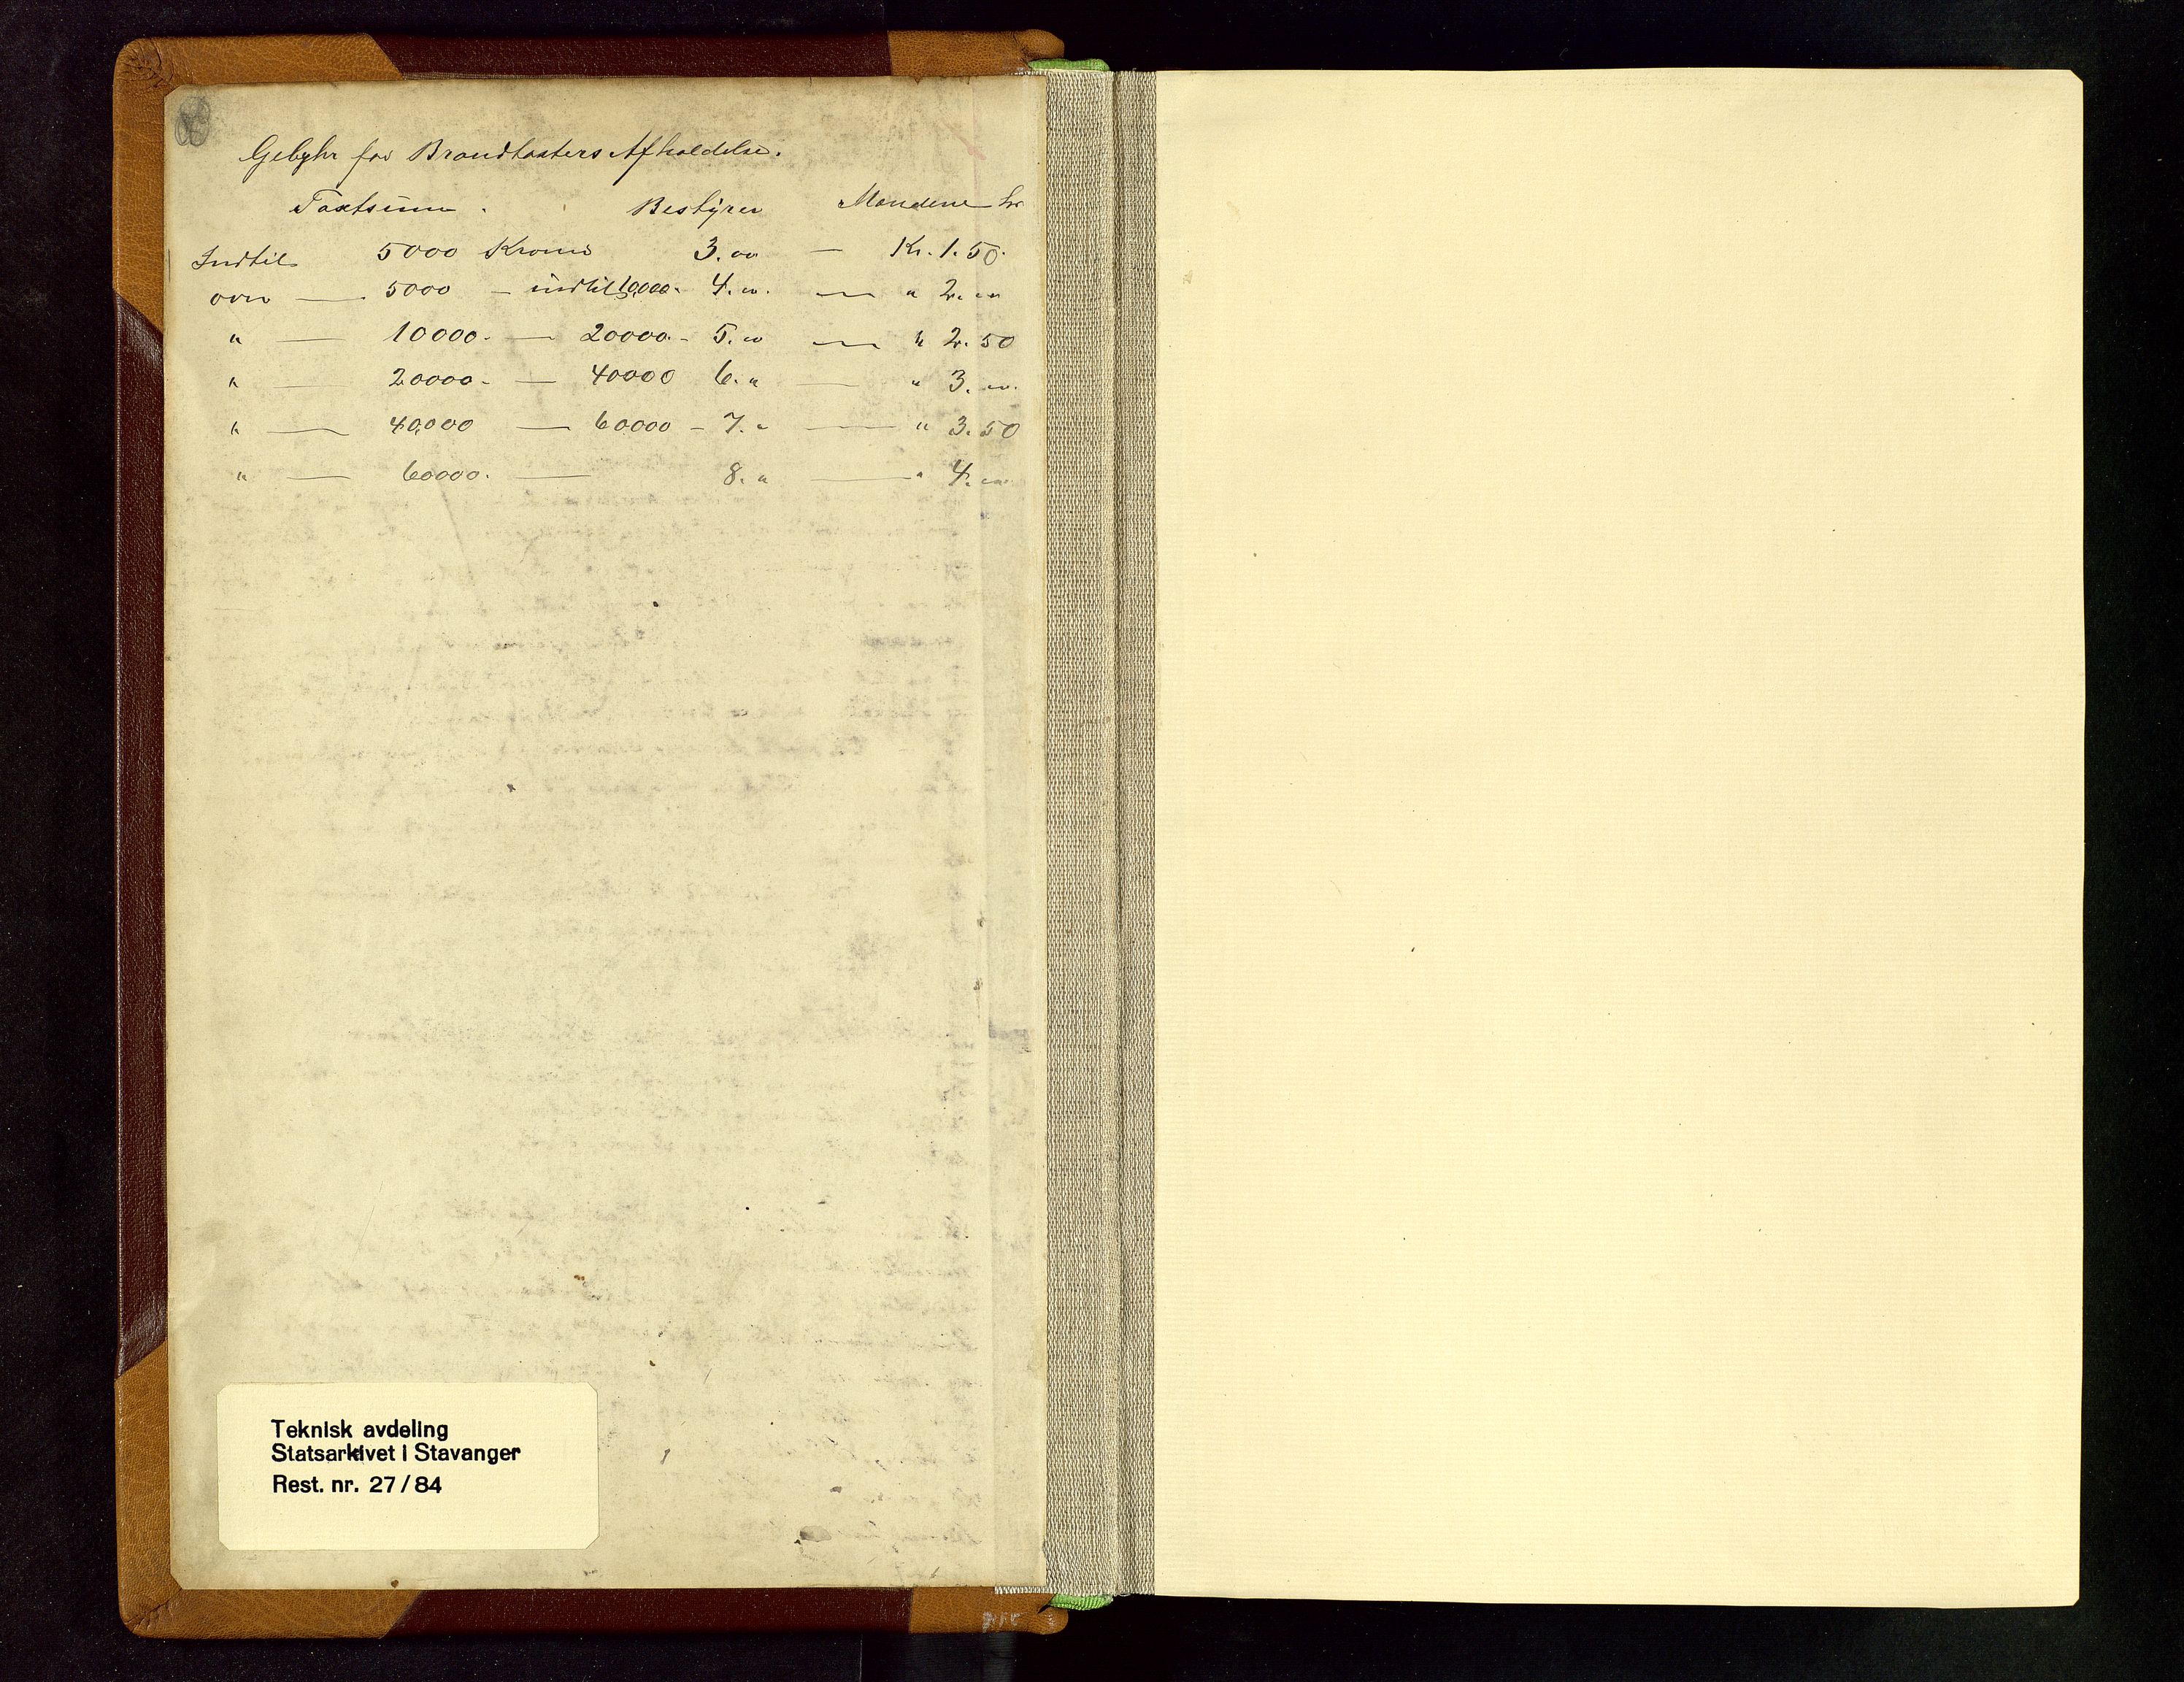 Gebyhr for Brandtaxters Afholdelse.
Taxtsum. Bestyrer Mændene hv
Indtil 5000 Kroner 3.00 — Kr. 1.50.
over — 5000 — indtil 10,000. 4.00. — " 2.00
" — 10000. — 20000. - 5.00 — " 2.50
" — 20000. — 40000 6." — " 3.00.
" — 40,000 — 60000 — 7." — " 3.50
" — 60000. — 8." — " 4.00
Teknisk avdeling
Statsarkivet i Stavanger
Rest. nr. 27/84